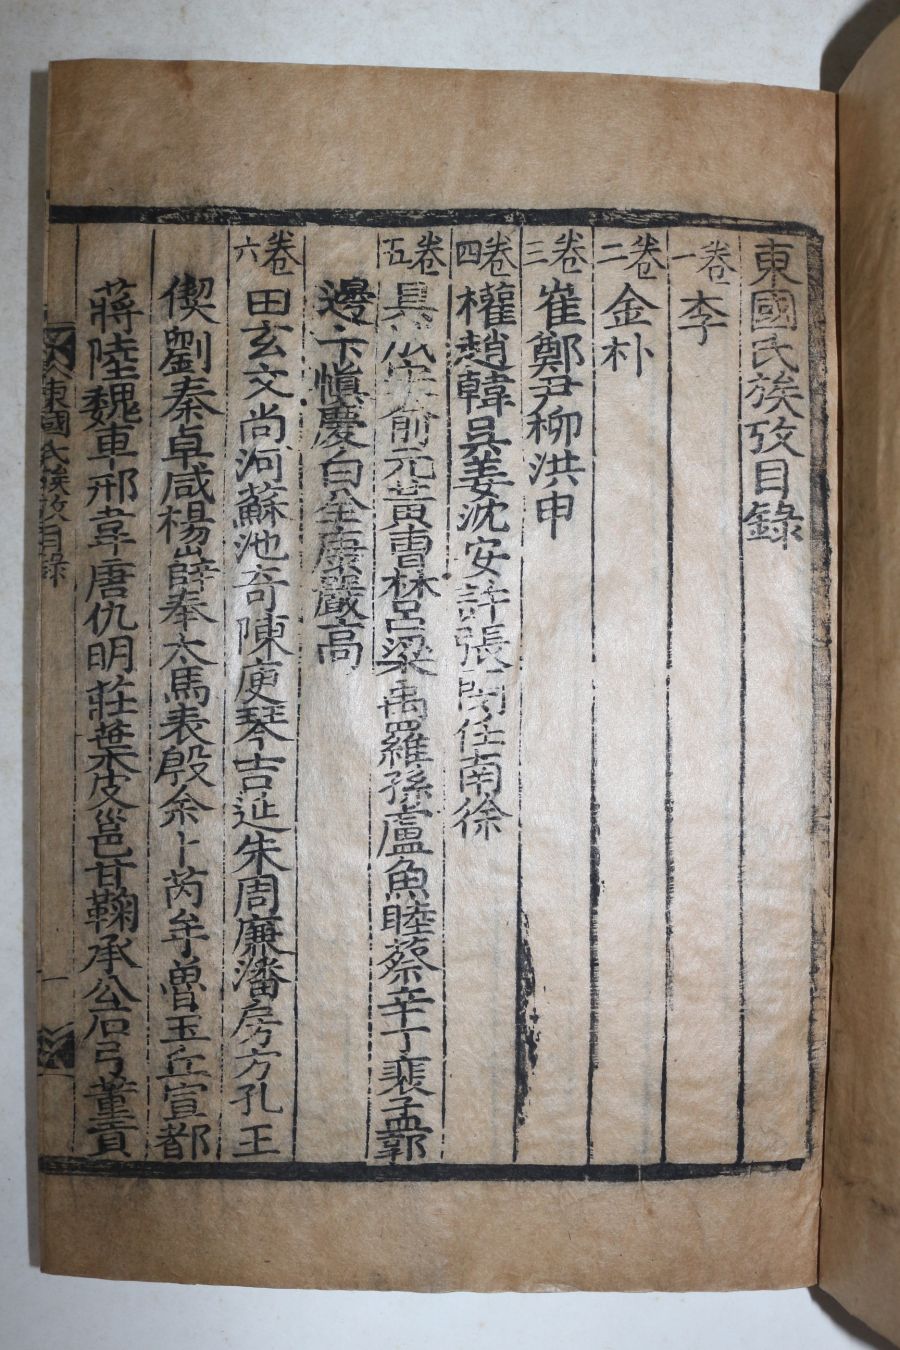 東國氏族攷目錄
卷一 李
卷二 金朴
卷三 崔鄭尹柳洪申
卷四 權趙韓吳姜沈安許張閔任南徐
卷五 具 宋俞元黃曺林呂梁禹羅孫盧魚睦蔡辛丁裵孟郭
邊卞愼慶白全康嚴高
卷六 田玄文尚河蘇池奇陳庾琴吉延朱周廉潘房方孔王
偰劉秦卓咸楊薛奉太馬表殷余卜芮牟曾玉丘宣都
蔣陸魏車邢韋唐仇明莊葉皮邕甘鞠承公石弓董賁
東國氏族攷目錄
一